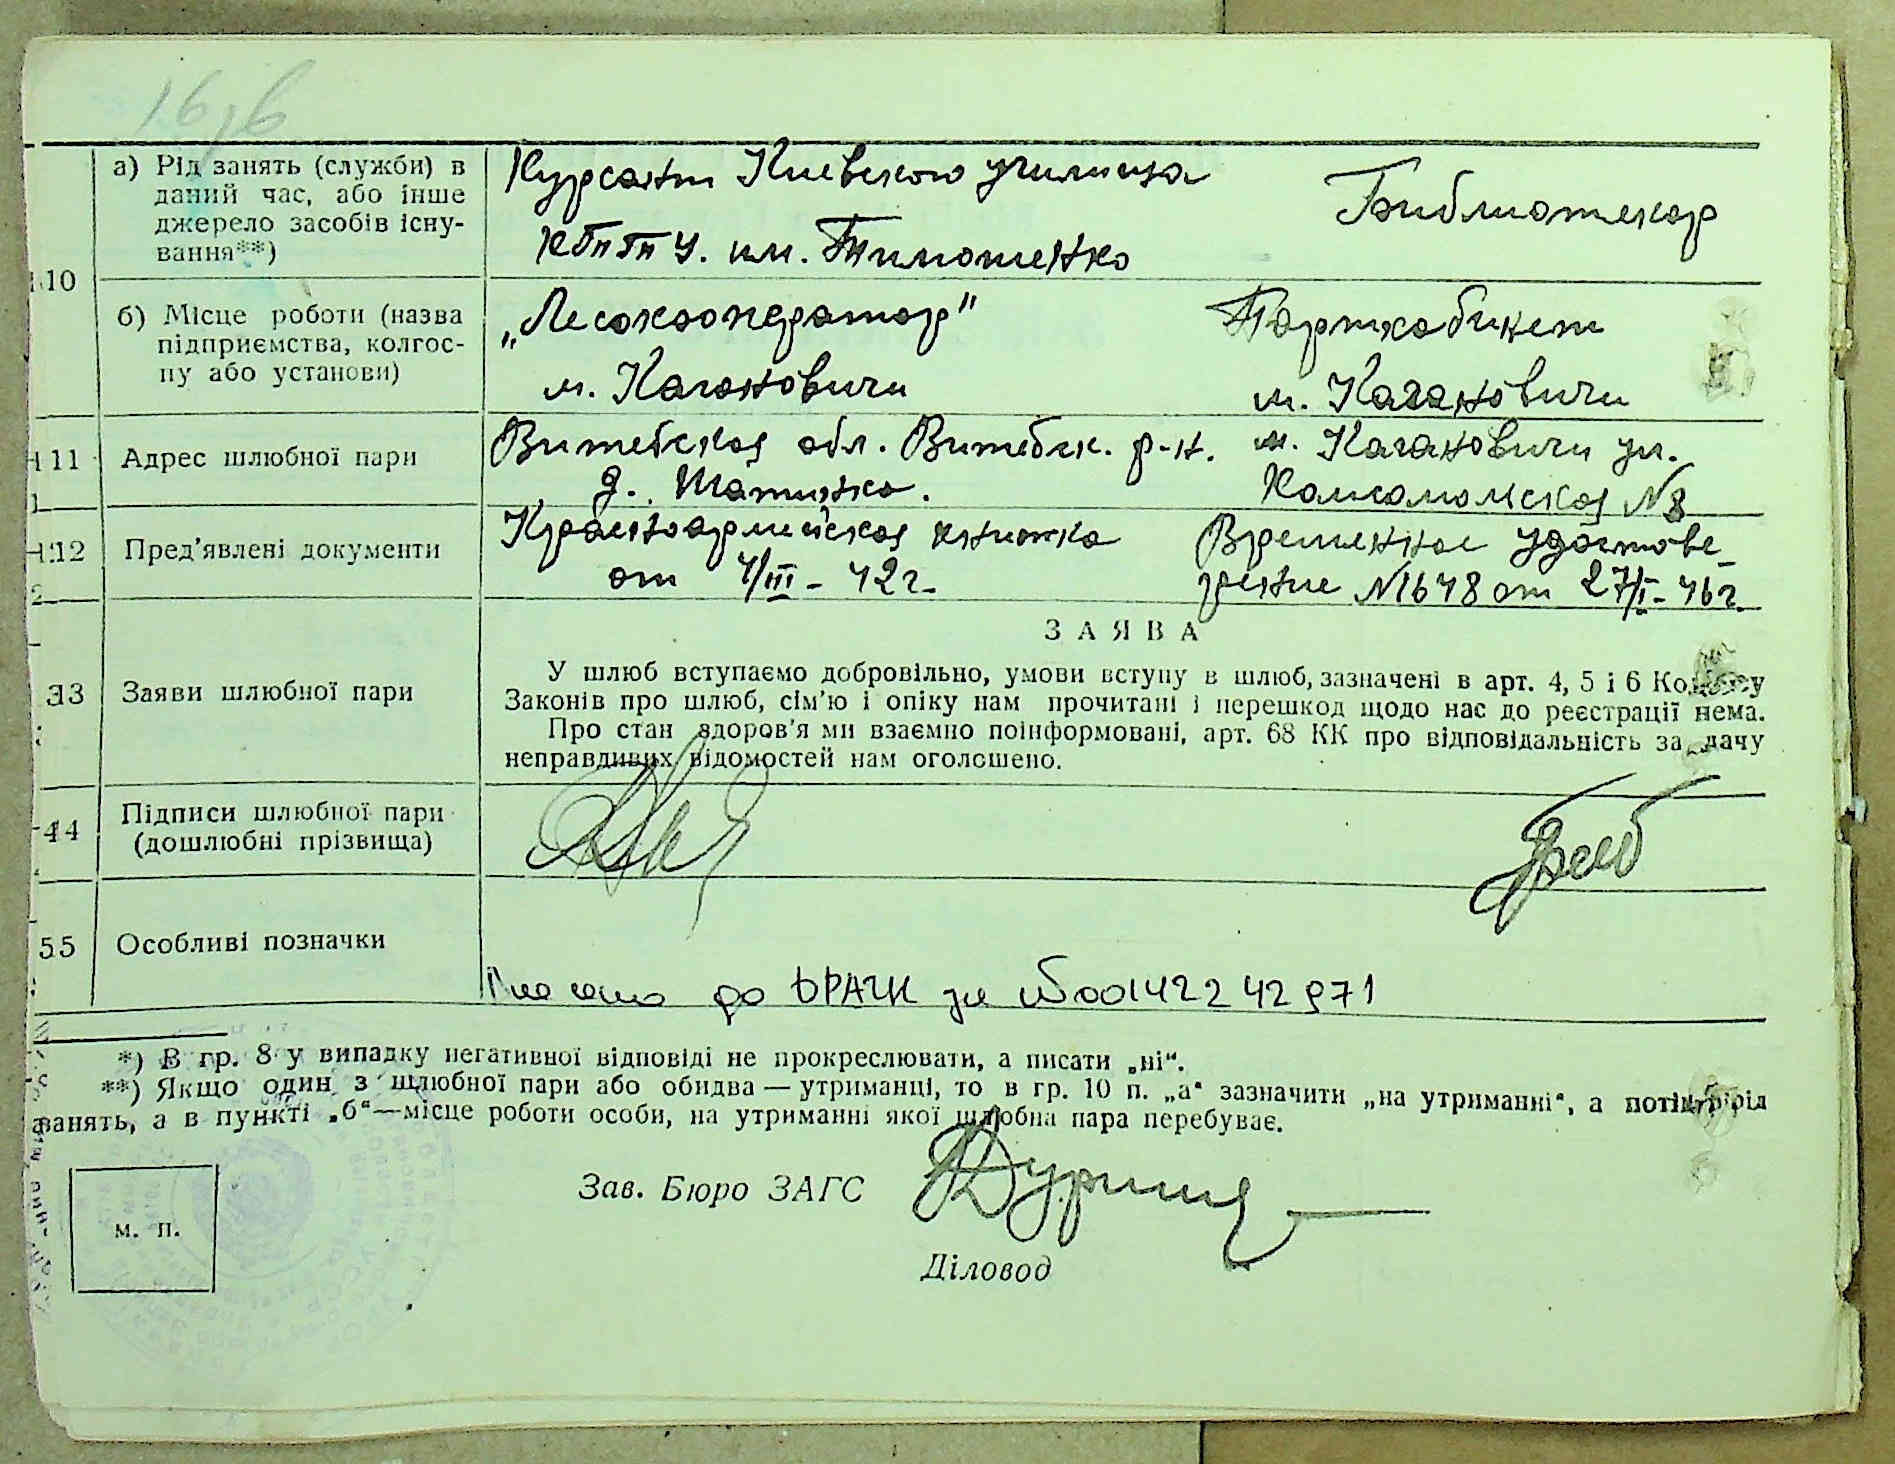 а) Рід занять (служби) в
даний час, або інше
джерело засобів існу-
вання**)
Курсант Киевского училища
КПпПпУ. им. Тимошенко
Библиотекар
10
б) Місце роботи (назва
підприємства, колгос-
пу або установи)
„Лесокооператор"
м. Кагановичи
Парткабинет
м. Кагановичи
11
Адрес шлюбної пари
Витебская обл. Витебск. р-н.
д.
м. Кагановичи ул.
Комсомольская №8
12
Пред'явлені документи
Красноармейская книжка
от 4/III - 42 г.
Временное удостове
рение №1648 от 27/I - 46 г.
ЗАЯВА
13
Заяви шлюбної пари
У шлюб вступаємо добровільно, умови вступу в шлюб, зазначені в арт. 4, 5 і 6 Кодексу
Законів про шлюб, сім'ю і опіку нам прочитані і перешкод щодо нас до реєстрації нема.
Про стан здоров'я ми взаємно поінформовані, арт. 68 КК про відповідальність за дачу
неправдивих відомостей нам оголошено.
14
Підписи шлюбної пари
(дошлюбні прізвища)
15
Особливі позначки
до ДРАЦС за №00142242971
*) В гр. 8 у випадку негативної відповіді не прокреслювати, а писати „ні“.
**) Якщо один з шлюбної пари або обидва — утриманці, то в гр. 10 п. „а“ зазначити „на утриманні“, а потім рід
занять, а в пункті „б“—місце роботи особи, на утриманні якої шлюбна пара перебуває.
Зав. Бюро ЗАГС
м. п.
Діловод